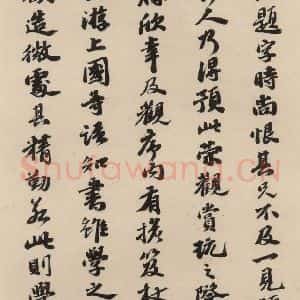 題字時尚恨其兄不及一見
人乃得預此榮觀賞玩之
欣幸及觀序內有授笈
游上國等語知書雖學之
造微處其精勤若此則學
Shufawang.CN